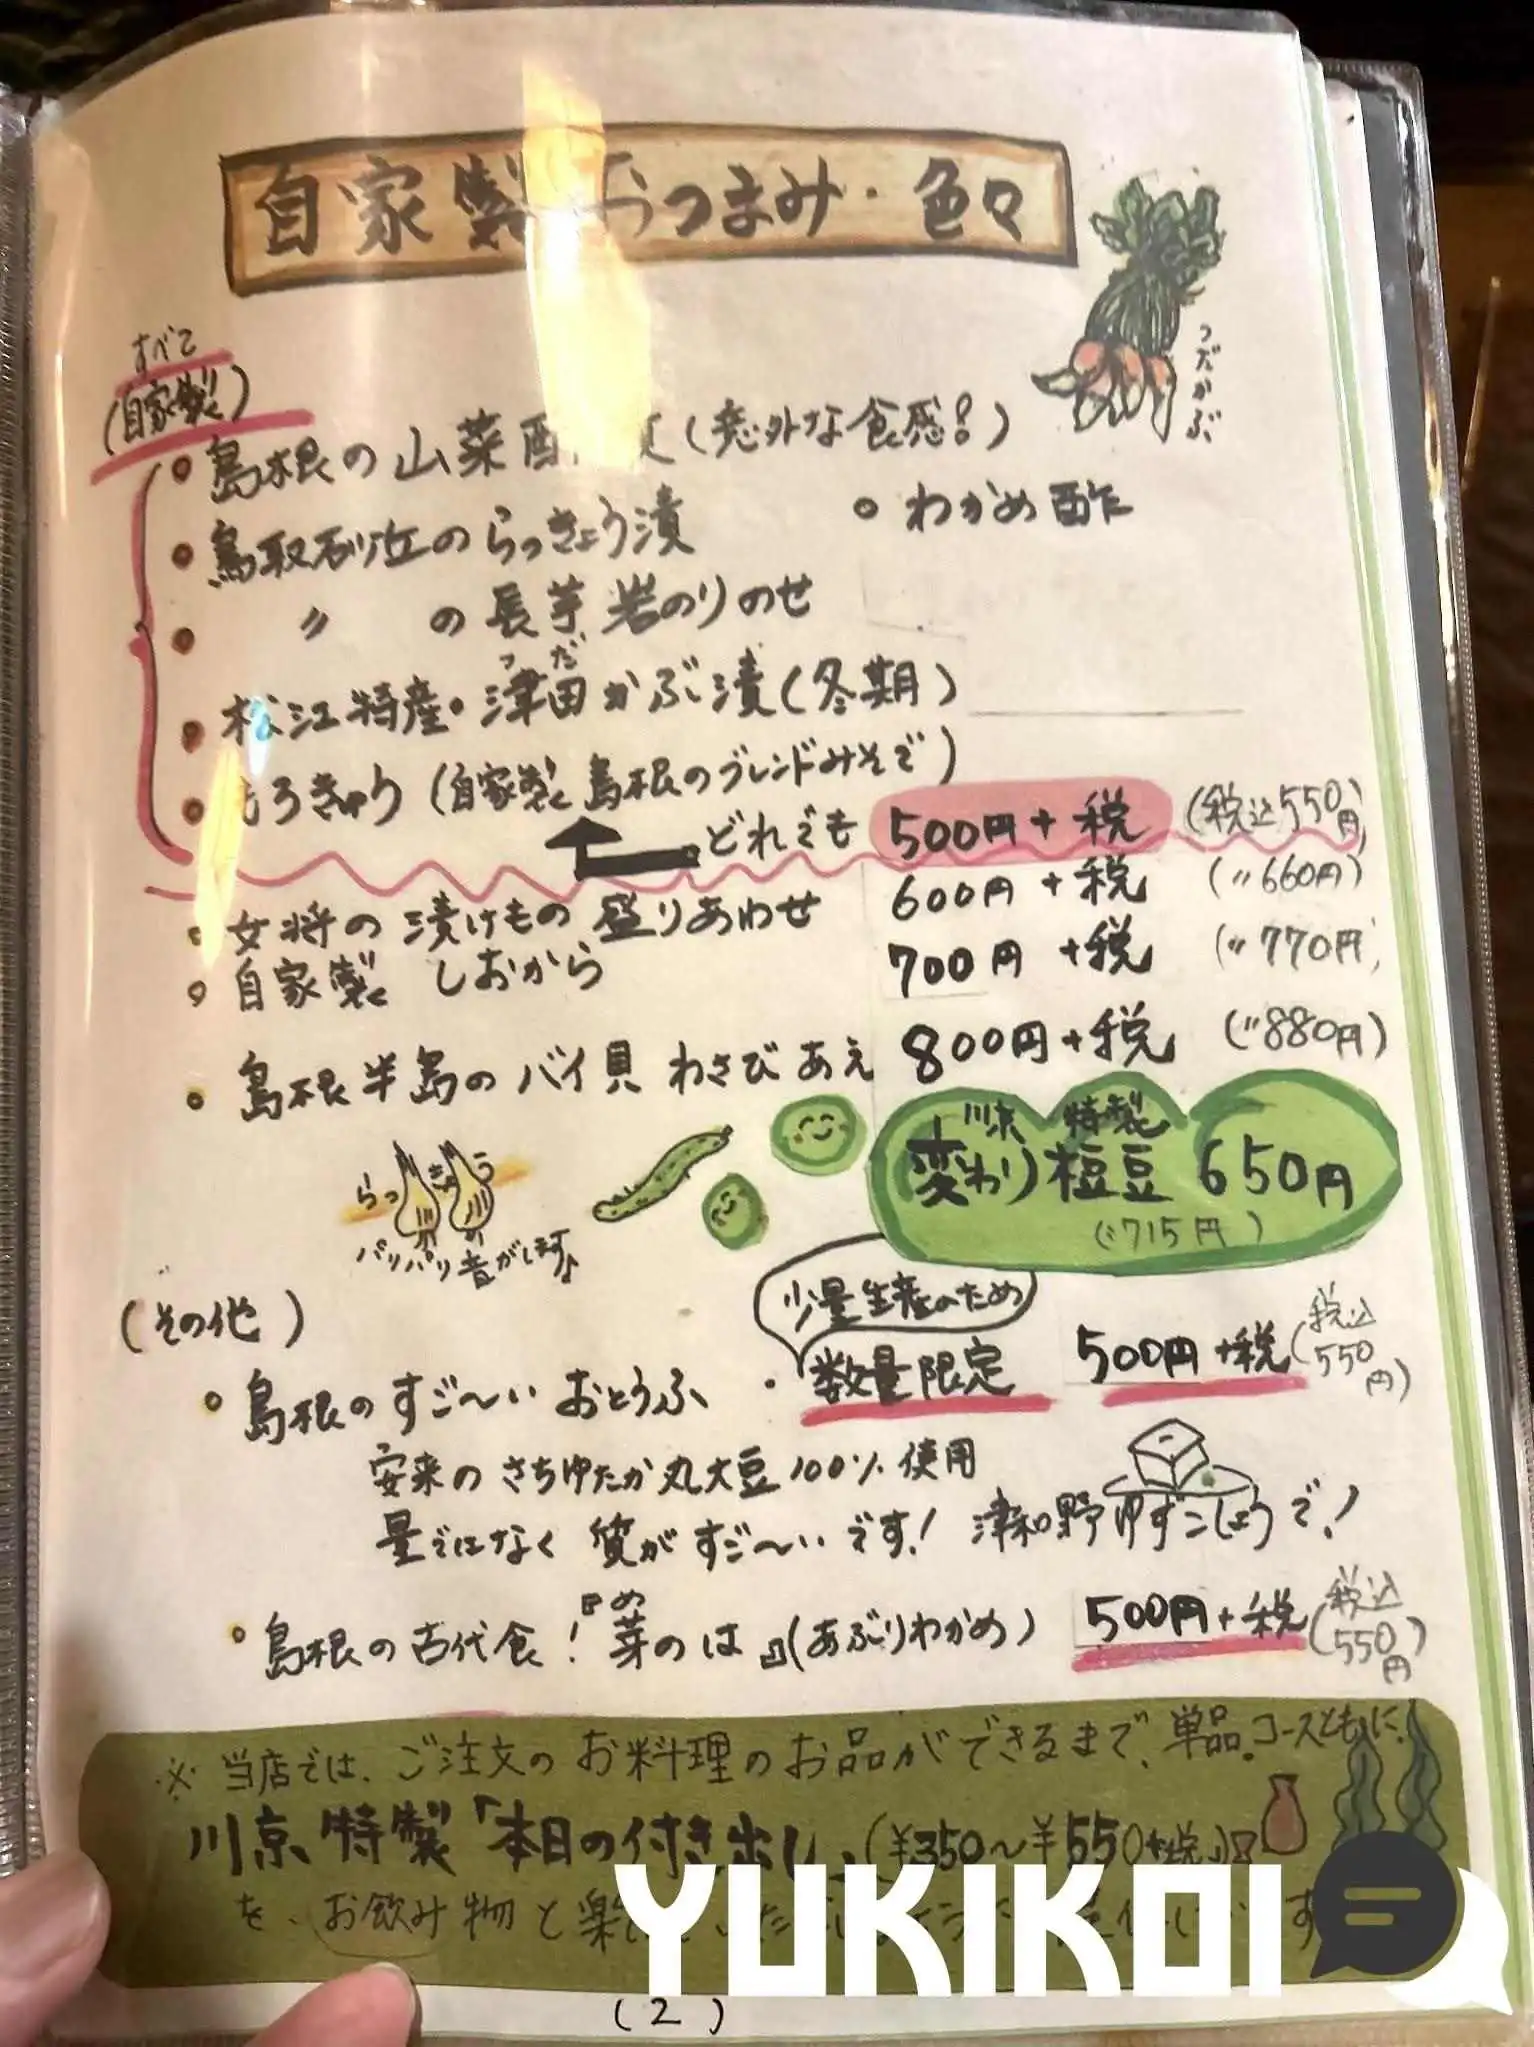 自家製おつまみ・色々
つだかぶ
すべて
(自家製)
島根の山菜 (意外な食感!)
鳥取砂丘のらっきょう漬
わかめ酢
〃 の長芋岩のりのせ
松江特産・津田かぶ漬(冬期)
つだ
もろきゅう(自家製島根のブレンドみそで)
どれでも 500円+税 (税込550円)
女将の漬けもの盛りあわせ 600円+税 (〃660円)
自家製 しおから 700円+税 (〃770円)
島根半島のバイ貝わさびあえ 800円+税 (〃880円)
川京 特製
変わり枝豆 650円
(〃715円)
らっきょう
パリパリ音がします♪
(その他)
少量生産のため
島根のすご〜いおとうふ ・数量限定 500円+税(税込550円)
安来のさちゆたか丸大豆100%使用
量ではなく質がすご〜いです! 津和野ゆずこしょうで!
島根の古代食!『芽のは』(あぶりわかめ) 500円+税(税込550円)
め
※当店では、ご注文のお料理のお品ができるまで、単品。コースともに、
川京特製「本日の付き出し」(¥350〜¥550+税)
を、お飲み物と楽
YUKIKOI
(2)